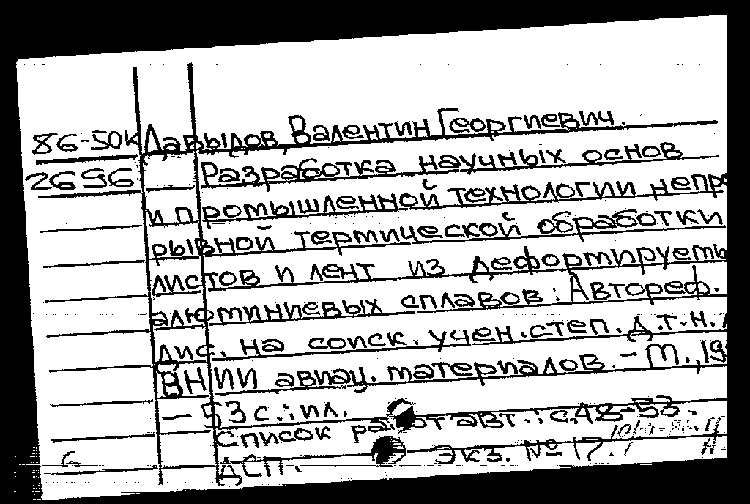 86-50к Давыдов, Валентин Георгиевич.
2696 Разработка научных основ
и промышленной технологии непре
рывной термической обработки
листов и лент из деформируемы
алюминиевых сплавов: Автореф.
дис. на соиск. учен. степ. д.т.н.
ВНИИ авиац. материалов. - М., 19
- 53 с.: ил.
Список работ авт.: с.48-53.
ДСП. Экз. № 17.